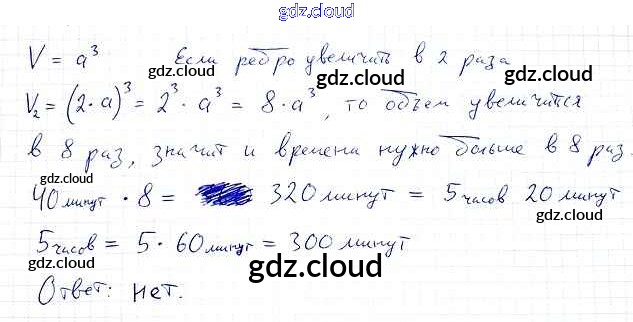 gdz.cloud
V = a³ Если ребро увеличить в 2 раза
gdz.cloud gdz.cloud
V₂ = (2·a)³ = 2³ · a³ = 8·a³, то объем увеличится
в 8 раз, значит и времена нужно больше в 8 раз.
gdz.cloud gdz.cloud
40 минут · 8 = 320 минут = 5 часов 20 минут
gdz.cloud gdz.cloud
5 часов = 5·60 минут = 300 минут
gdz.cloud
Ответ: нет.
gdz.cloud